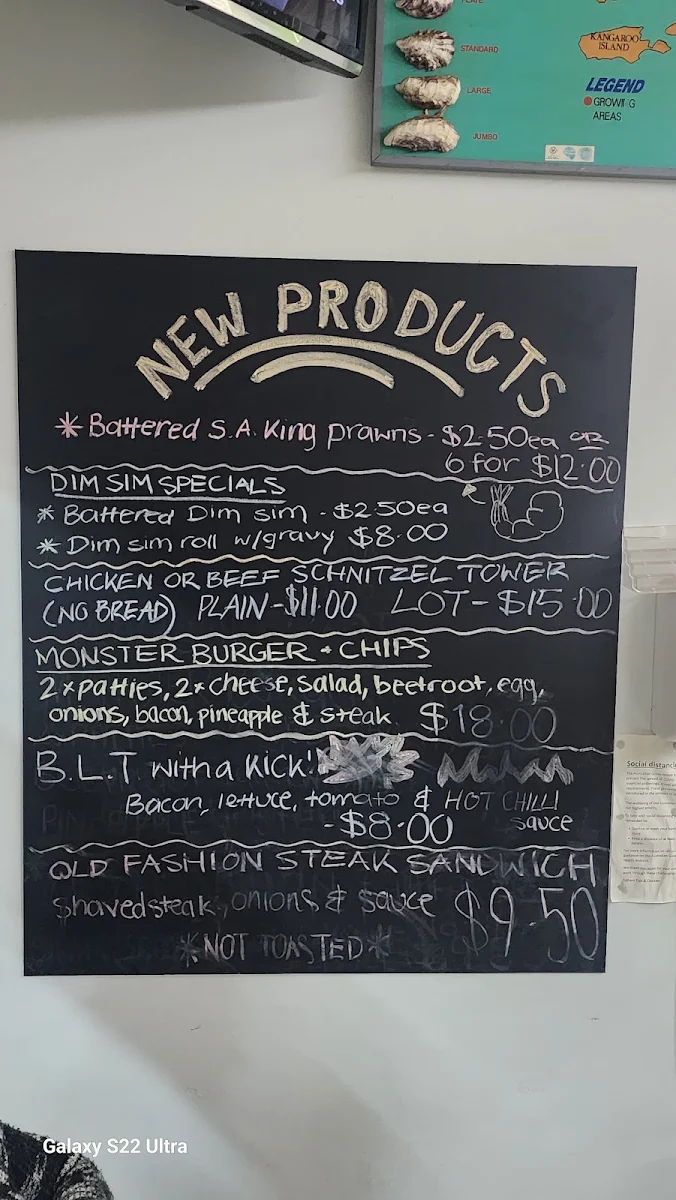 PLATE
STANDARD
LARGE
JUMBO
KANGAROO
ISLAND
LEGEND
GROWING
AREAS
NEW PRODUCTS
* Battered S.A. King prawns - $2.50ea OR
6 for $12.00
DIM SIM SPECIALS
* Battered Dim sim - $2.50ea
* Dim sim roll w/gravy $8.00
CHICKEN OR BEEF SCHNITZEL TOWER
(NO BREAD) PLAIN - $11.00 LOT - $15.00
MONSTER BURGER + CHIPS
2 x patties, 2 x cheese, salad, beetroot, egg,
onions, bacon, pineapple & steak $18.00
B.L.T with a KICK!
Bacon, lettuce, tomato & HOT CHILLI
- $8.00 sauce
OLD FASHION STEAK SANDWICH
Shaved steak, onions & sauce $9.50
*NOT TOASTED*
Social distanci
Galaxy S22 Ultra